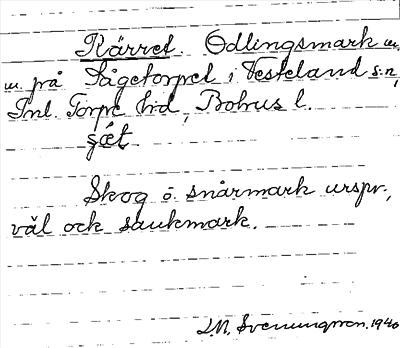 Kärret. Odlingsmark m.
m. på Sågetorpet i Vesteland s:n,
Inl. Torpe hd, Bohus l.
Skog o. snårmark urspr.,
väl ock sankmark.
J.N. Svenningsson. 1940